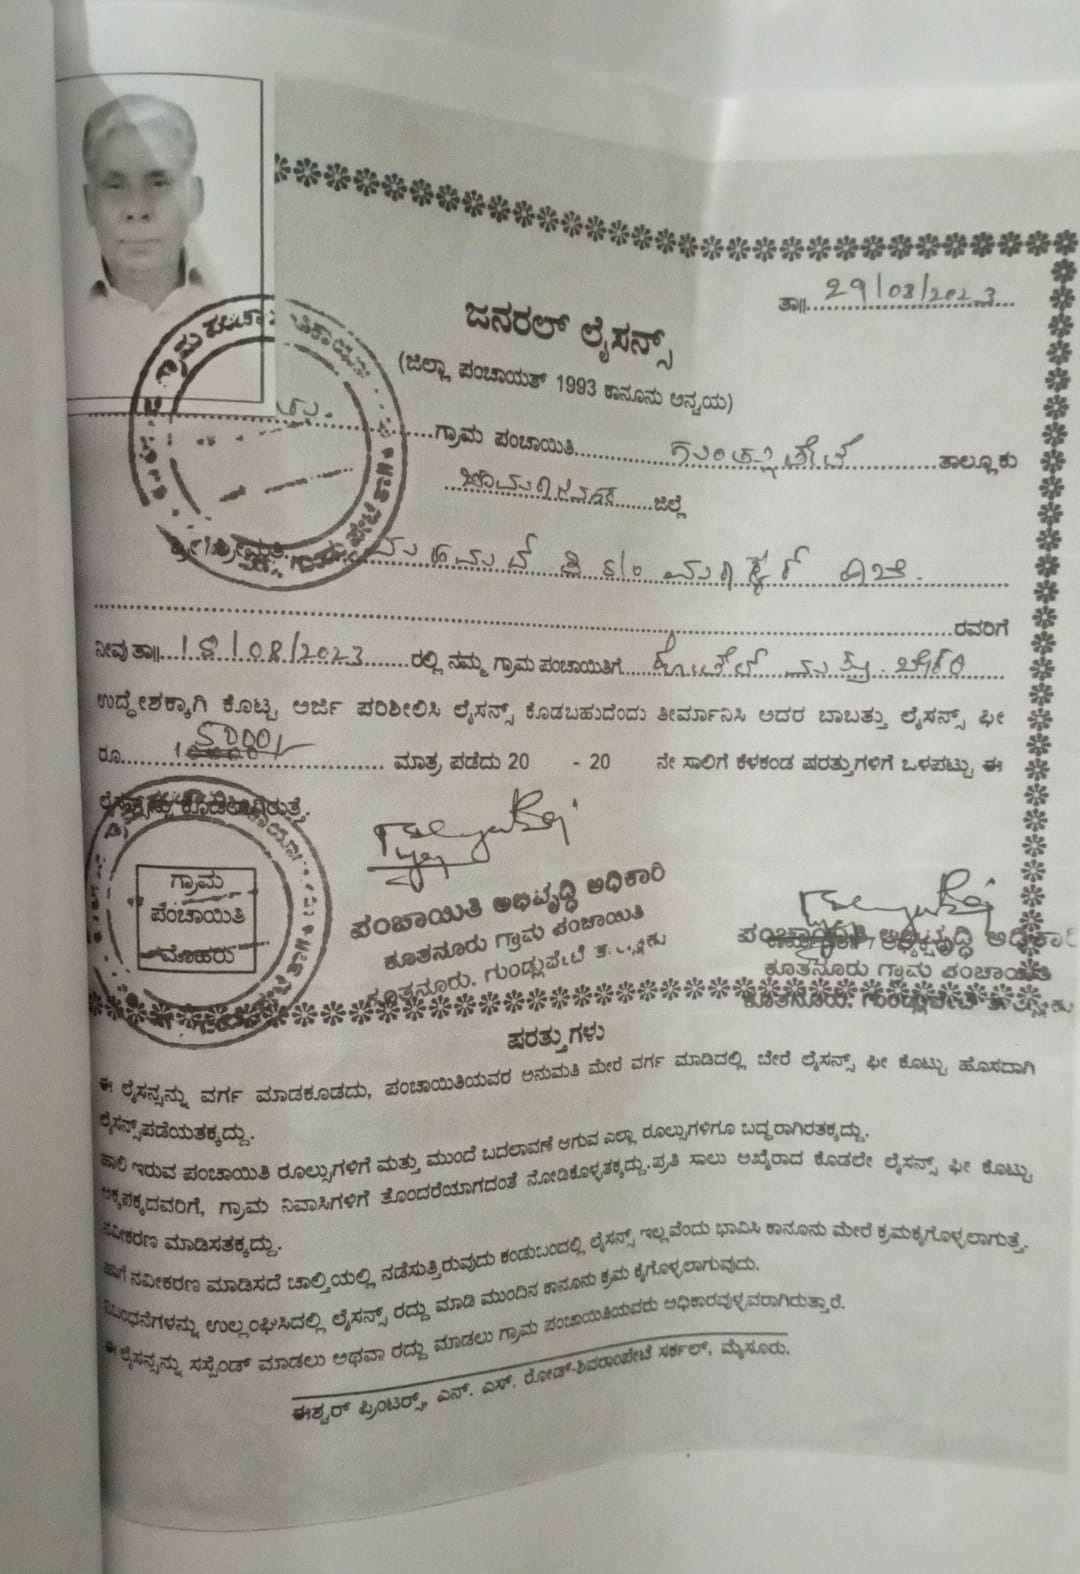 ತಾ॥ 29/08/2023
ಜನರಲ್ ಲೈಸನ್ಸ್
(ಜಿಲ್ಲಾ ಪಂಚಾಯತ್ 1993 ಕಾನೂನು ಅನ್ವಯ)
ಗ್ರಾಮ ಪಂಚಾಯಿತಿ ಗುಂಡ್ಲುಪೇಟೆ ತಾಲ್ಲೂಕು
ಚಾಮರಾಜನಗರ ಜಿಲ್ಲೆ
ಶ್ರೀ/ಶ್ರೀಮತಿ
ರವರಿಗೆ
ನೀವು ತಾ॥ 18/08/2023 ರಲ್ಲಿ ನಮ್ಮ ಗ್ರಾಮ ಪಂಚಾಯಿತಿಗೆ ಹೋಟೆಲ್ ಮತ್ತು ಬೇಕರಿ
ಉದ್ಧೇಶಕ್ಕಾಗಿ ಕೊಟ್ಟ ಅರ್ಜಿ ಪರಿಶೀಲಿಸಿ ಲೈಸನ್ಸ್ ಕೊಡಬಹುದೆಂದು ತೀರ್ಮಾನಿಸಿ ಅದರ ಬಾಬತ್ತು ಲೈಸನ್ಸ್ ಫೀ
ರೂ. ಮಾತ್ರ ಪಡೆದು 20 - 20 ನೇ ಸಾಲಿಗೆ ಕೆಳಕಂಡ ಷರತ್ತುಗಳಿಗೆ ಒಳಪಟ್ಟು ಈ
ಲೈಸನ್ಸನ್ನು ಕೊಡಲಾಗಿರುತ್ತೆ.
ಗ್ರಾಮ
ಪಂಚಾಯಿತಿ
ಮೊಹರು
ಪಂಚಾಯಿತಿ ಅಭಿವೃದ್ಧಿ ಅಧಿಕಾರಿ
ಕೂತನೂರು ಗ್ರಾಮ ಪಂಚಾಯಿತಿ
ಕೂತನೂರು. ಗುಂಡ್ಲುಪೇಟೆ
ಪಂಚಾಯಿತಿ ಅಭಿವೃದ್ಧಿ ಅಧಿಕಾರಿ
ಕೂತನೂರು ಗ್ರಾಮ ಪಂಚಾಯಿತಿ
ಕೂತನೂರು. ಗುಂಡ್ಲುಪೇಟೆ
ಷರತ್ತುಗಳು
ಈ ಲೈಸನ್ಸನ್ನು ವರ್ಗ ಮಾಡಕೂಡದು, ಪಂಚಾಯಿತಿಯವರ ಅನುಮತಿ ಮೇರೆ ವರ್ಗ ಮಾಡಿದಲ್ಲಿ ಬೇರೆ ಲೈಸನ್ಸ್ ಫೀ ಕೊಟ್ಟು ಹೊಸದಾಗಿ
ಲೈಸನ್ಸ್‌ಪಡೆಯತಕ್ಕದ್ದು.
ಹಾಲಿ ಇರುವ ಪಂಚಾಯಿತಿ ರೂಲ್ಸುಗಳಿಗೆ ಮತ್ತು ಮುಂದೆ ಬದಲಾವಣೆ ಆಗುವ ಎಲ್ಲಾ ರೂಲ್ಸುಗಳಿಗೂ ಬದ್ಧರಾಗಿರತಕ್ಕದ್ದು.
ಅಕ್ಕಪಕ್ಕದವರಿಗೆ, ಗ್ರಾಮ ನಿವಾಸಿಗಳಿಗೆ ತೊಂದರೆಯಾಗದಂತೆ ನೋಡಿಕೊಳ್ಳತಕ್ಕದ್ದು.ಪ್ರತಿ ಸಾಲು ಅಖೈರಾದ ಕೊಡಲೇ ಲೈಸನ್ಸ್ ಫೀ ಕೊಟ್ಟು
ನವೀಕರಣ ಮಾಡಿಸತಕ್ಕದ್ದು.
ಹಾಗೆ ನವೀಕರಣ ಮಾಡಿಸದೆ ಚಾಲ್ತಿಯಲ್ಲಿ ನಡೆಸುತ್ತಿರುವುದು ಕಂಡುಬಂದಲ್ಲಿ ಲೈಸನ್ಸ್ ಇಲ್ಲವೆಂದು ಭಾವಿಸಿ ಕಾನೂನು ಮೇರೆ ಕ್ರಮಕೈಗೊಳ್ಳಲಾಗುತ್ತೆ.
ನಿಬಂಧನೆಗಳನ್ನು ಉಲ್ಲಂಘಿಸಿದಲ್ಲಿ ಲೈಸನ್ಸ್ ರದ್ದು ಮಾಡಿ ಮುಂದಿನ ಕಾನೂನು ಕ್ರಮ ಕೈಗೊಳ್ಳಲಾಗುವುದು.
ಈ ಲೈಸನ್ಸನ್ನು ಸಸ್ಪೆಂಡ್ ಮಾಡಲು ಅಥವಾ ರದ್ದು ಮಾಡಲು ಗ್ರಾಮ ಪಂಚಾಯಿತಿಯವರು ಅಧಿಕಾರವುಳ್ಳವರಾಗಿರುತ್ತಾರೆ.
ಈಶ್ವರ್ ಪ್ರಿಂಟರ್ಸ್, ಎನ್. ಎಸ್. ರೋಡ್-ಶಿವರಾಂಪೇಟೆ ಸರ್ಕಲ್, ಮೈಸೂರು.